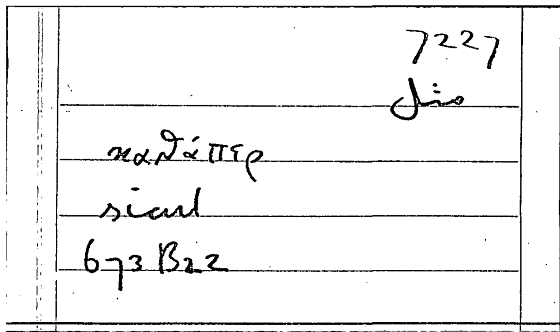 7227
مثل
καθάπερ
sicut
673 B22